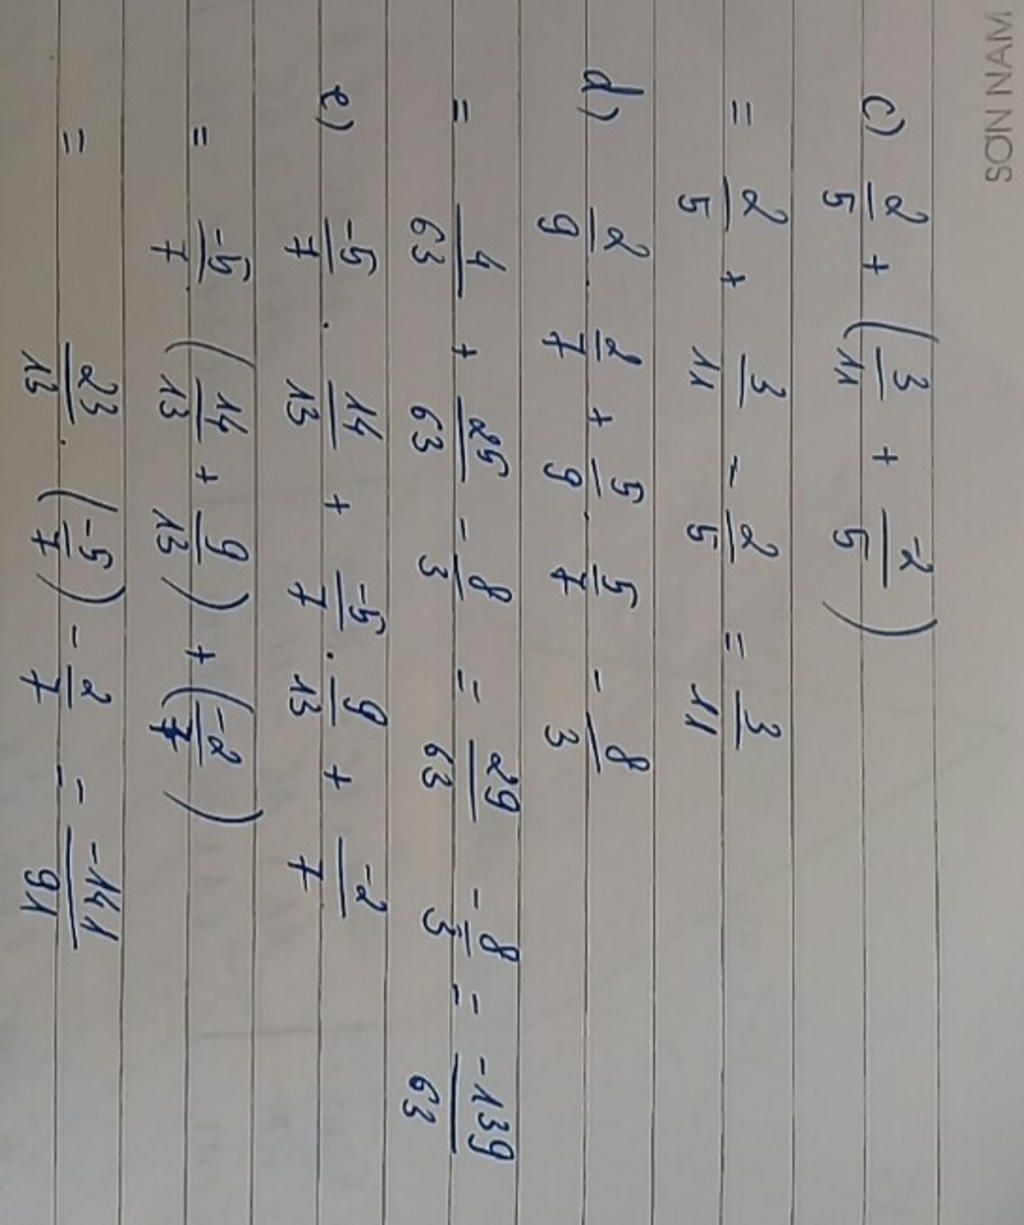 SƠN NAM
c) 2/5 + (3/11 + -2/5)
= 2/5 + 3/11 - 2/5 = 3/11
d) 2/9 . 2/7 + 5/9 . 5/7 - 8/3
= 4/63 + 25/63 - 8/3 = 29/63 - 8/3 = -139/63
e) -5/7 . 14/13 + -5/7 . 9/13 + -2/7
= -5/7 . (14/13 + 9/13) + (-2/7)
= 23/13 . (-5/7) - 2/7 = -141/91